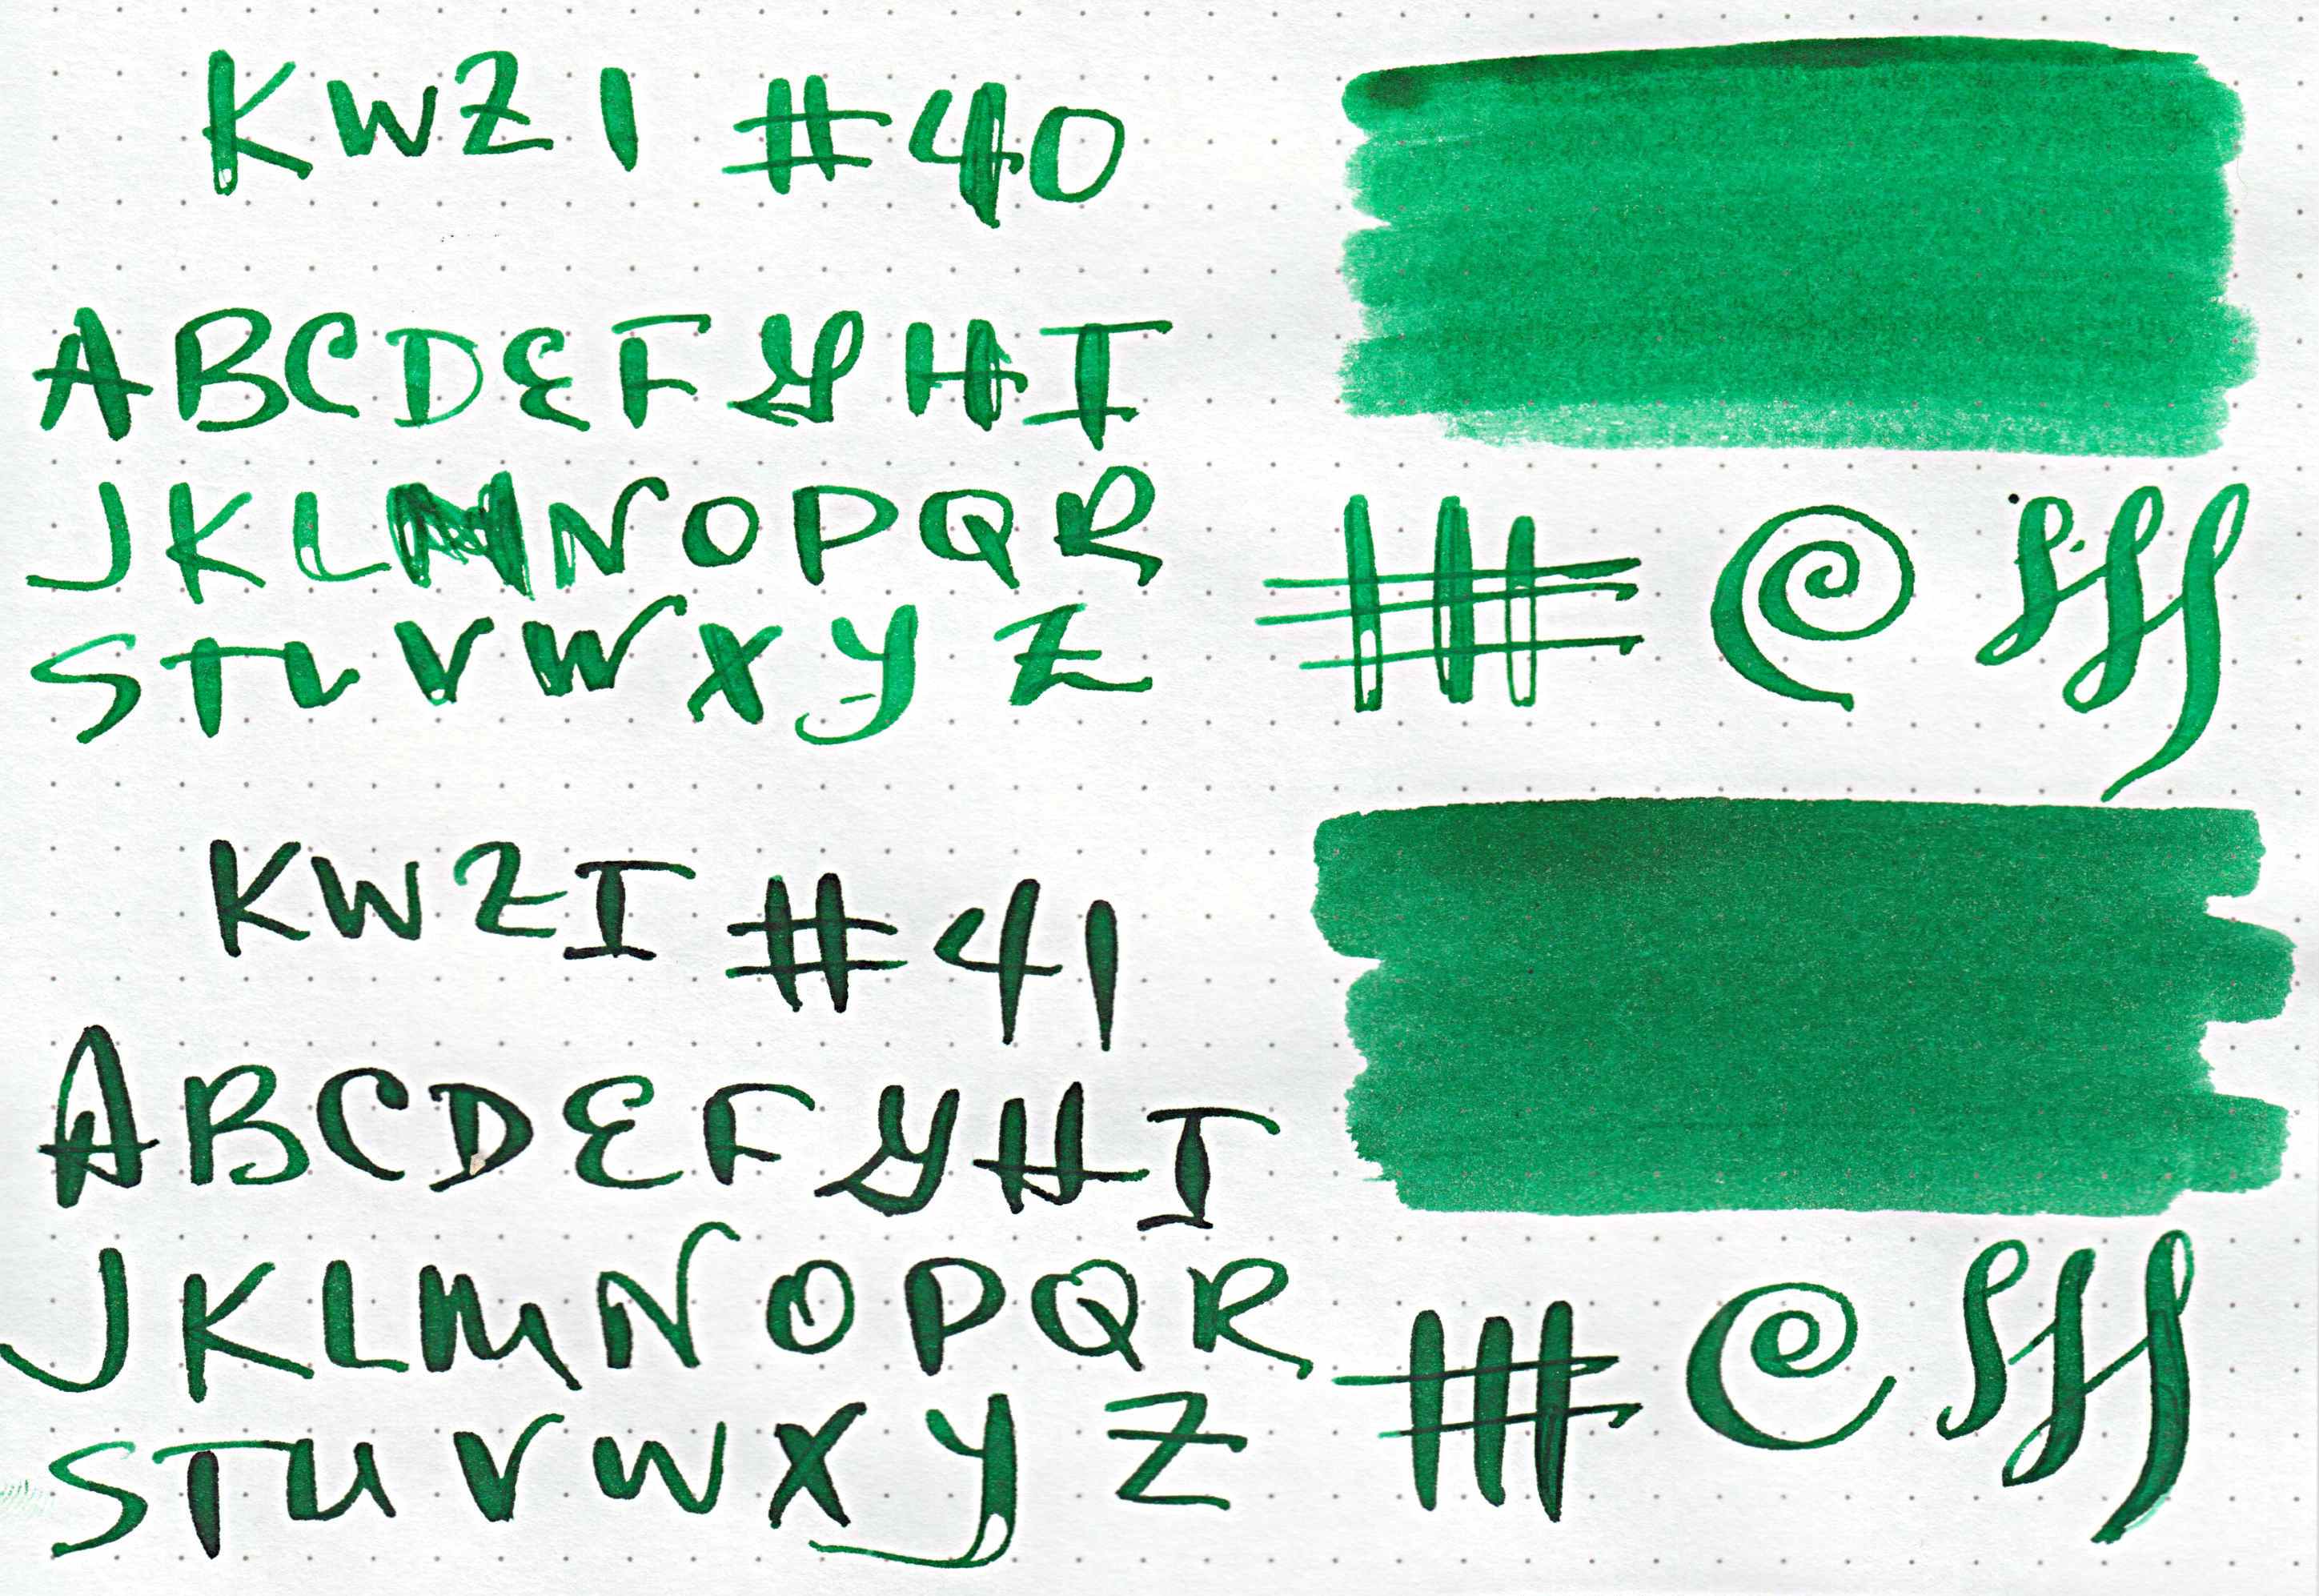 KWZI #40
ABCDEFGHI
JKLMNOPQR
STUVWXYZ
KWZI #41
ABCDEFGHI
JKLMNOPQR
STUVWXYZ